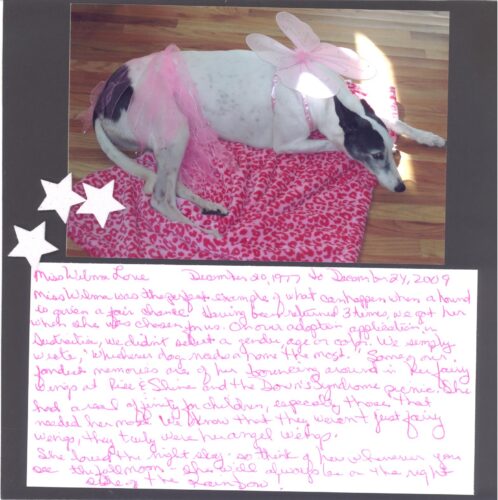 Miss Wilma Love December 20, 1997 to December 24, 2009
Miss Wilma was the perfect example of what can happen when a hound
is given a fair chance. Having been returned 3 times, we got her
when she was chosen for us. On our adoption application, in
destination, we didn't select a gender, age or color. We simply
wrote, "Whichever dog needs a home the most." Some of our
fondest memories are of her bouncing around in her fairy
wings at Rise & Shine and the Down's Syndrome picnic. She
had a real affinity for children, especially those that
needed her most. We know that they weren't just fairy
wings, they truly were her angel wings.
She loved the night sky so think of her whenever you
see the full moon. She will always be on the right
side of the Rainbow.